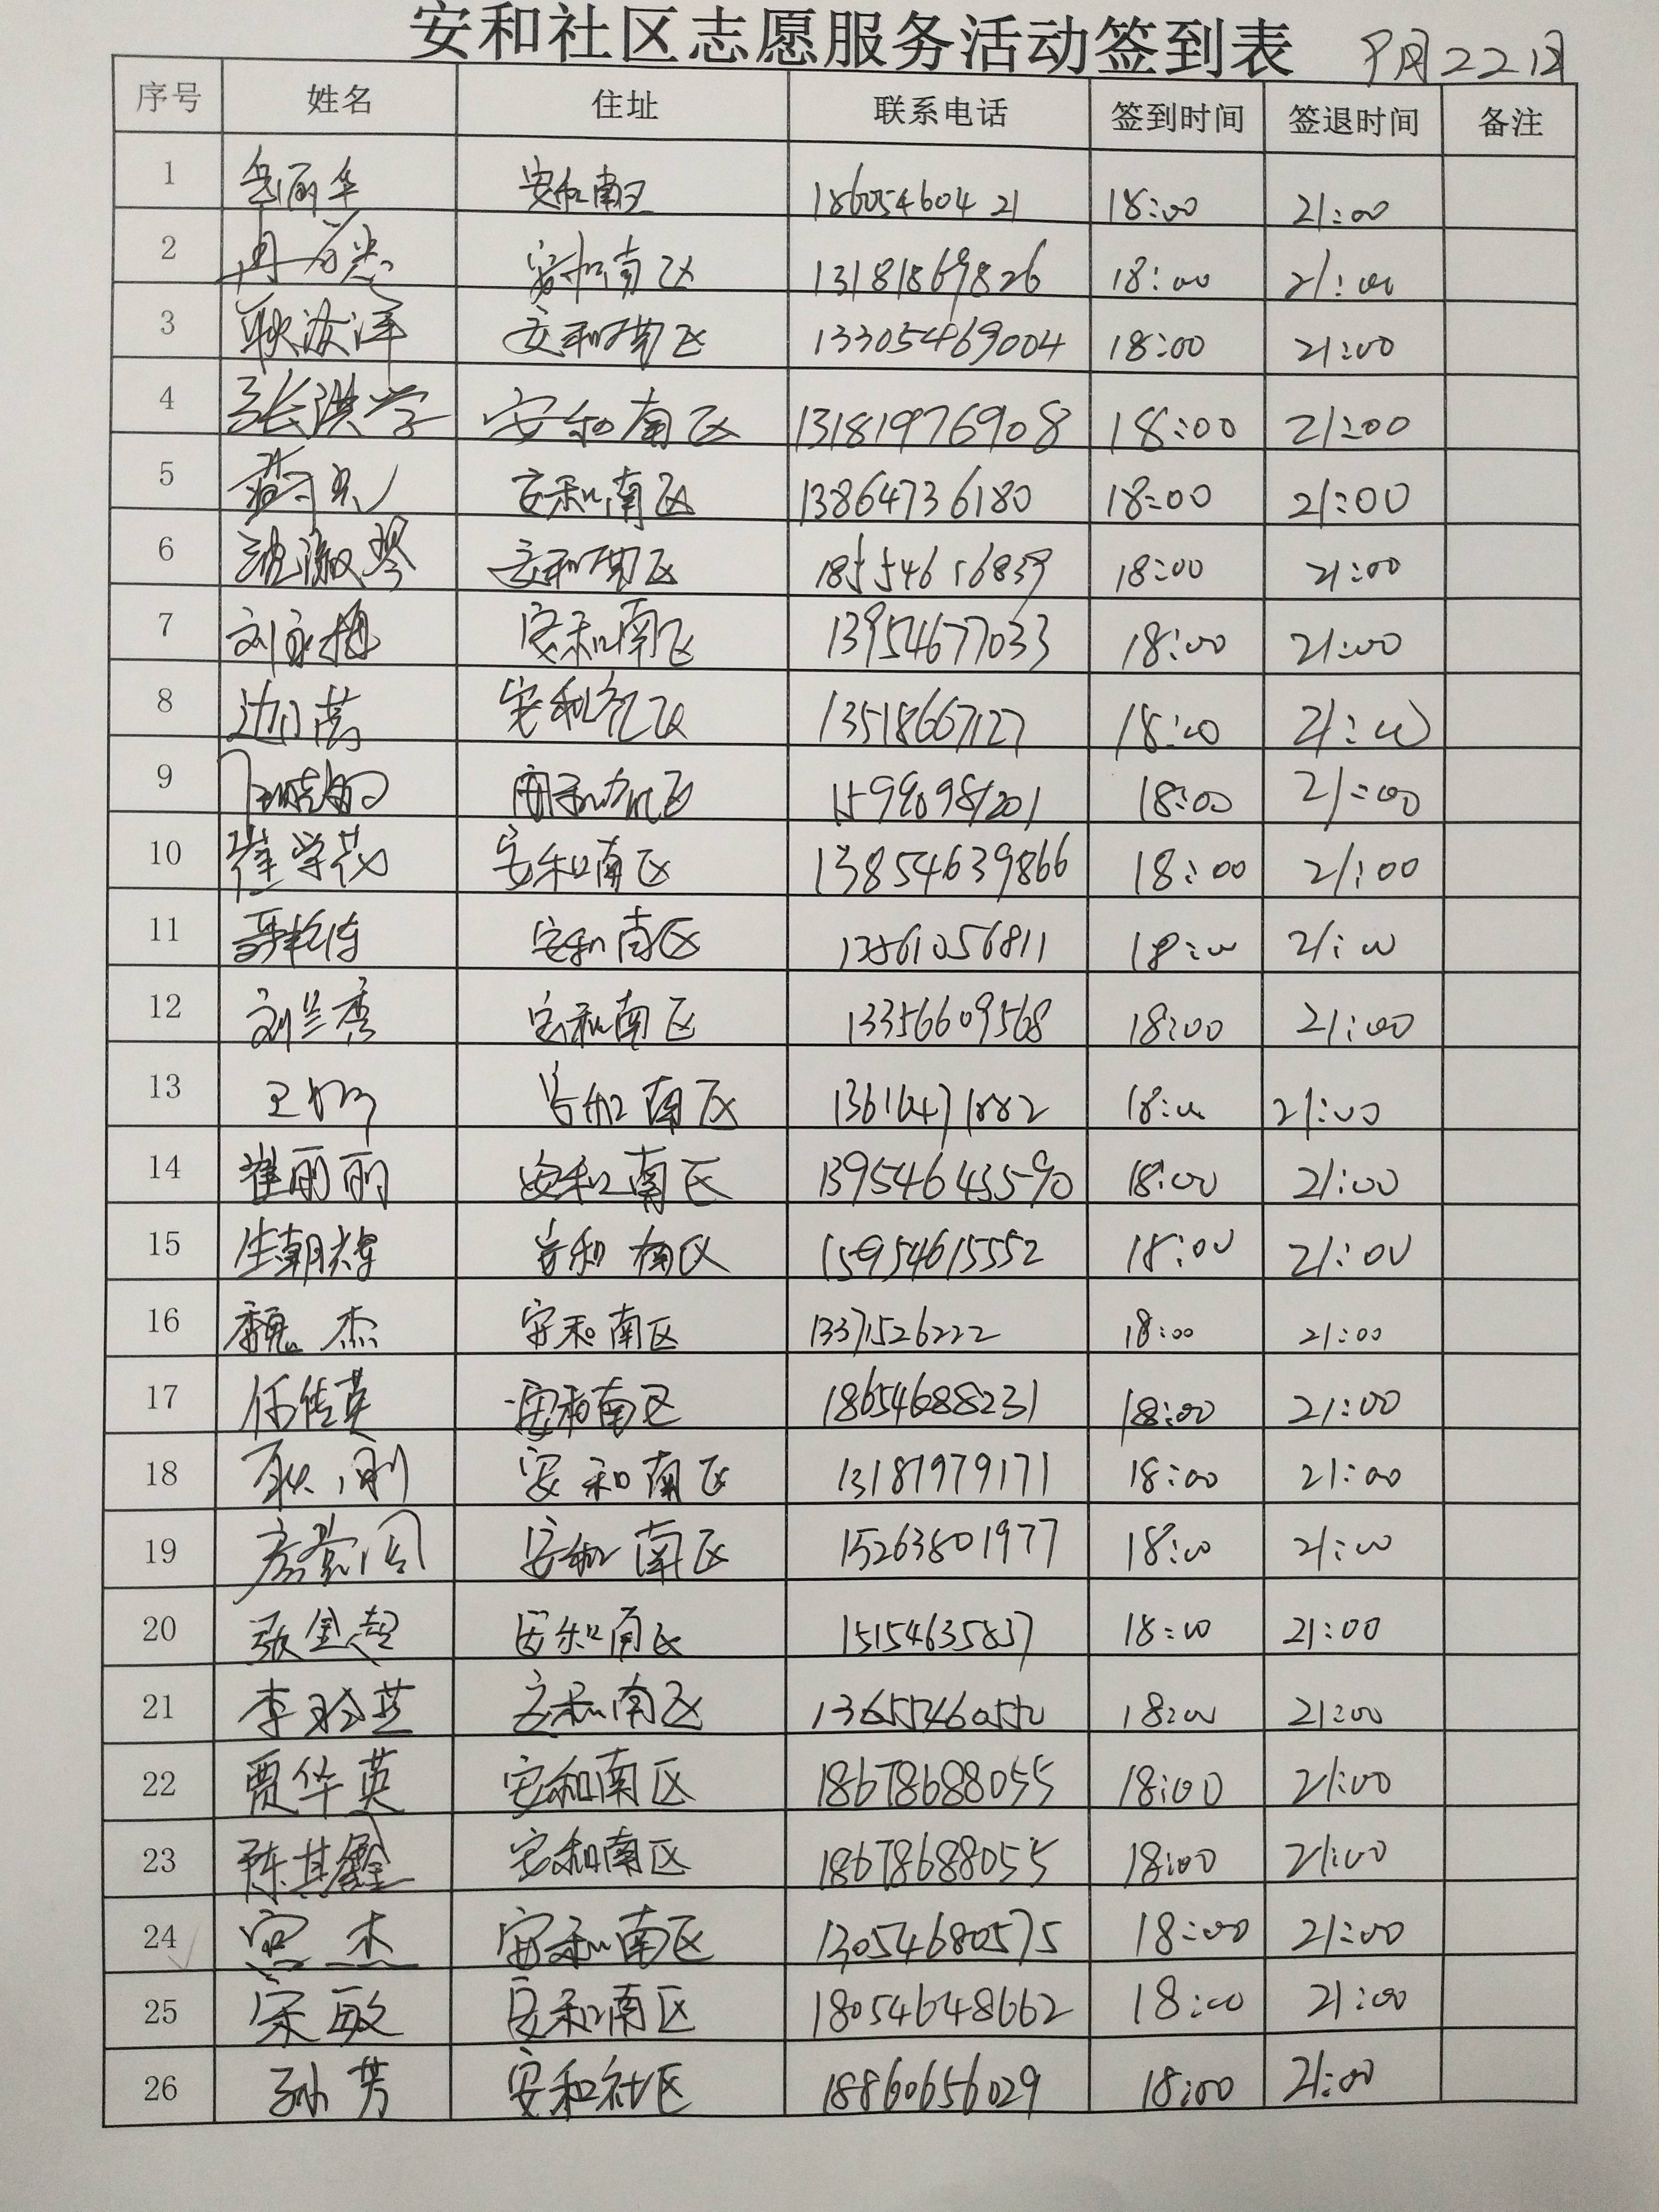 安和社区志愿服务活动签到表 9月22日
序号 姓名 住址 联系电话 签到时间 签退时间 备注
1 岳丽华 安和南区 18605460421 18:00 21:00
2 安和南区 13181869826 18:00 21:00
3 耿汝洋 安和南区 13305469004 18:00 21:00
4 张洪学 安和南区 13181976908 18:00 21:00
5 安和南区 13864736180 18:00 21:00
6 安和南区 18554656839 18:00 21:00
7 刘永梅 安和南区 13954677033 18:00 21:00
8 安和社区 13518667127 18:00 21:00
9 18:00 21:00
10 崔学花 安和南区 13854639866 18:00 21:00
11 安和南区 13561056811 18:00 21:00
12 刘兰秀 安和南区 13356609568 18:00 21:00
13 王 安和南区 18:00 21:00
14 崔丽丽 安和南区 13954643590 18:00 21:00
15 生朝辉 安和南区 15954615552 18:00 21:00
16 魏杰 安和南区 13371526222 18:00 21:00
17 任佳英 安和南区 18654688231 18:00 21:00
18 耿刚 安和南区 13181979171 18:00 21:00
19 安和南区 15263801977 18:00 21:00
20 张金超 安和南区 15154635837 18:00 21:00
21 李玲芝 安和南区 13655460550 18:00 21:00
22 贾华英 安和南区 18678688055 18:00 21:00
23 陈其鑫 安和南区 18678688055 18:00 21:00
24 宫杰 安和南区 13054680575 18:00 21:00
25 宋敏 安和南区 18054648662 18:00 21:00
26 孙芳 安和社区 18860656029 18:00 21:00